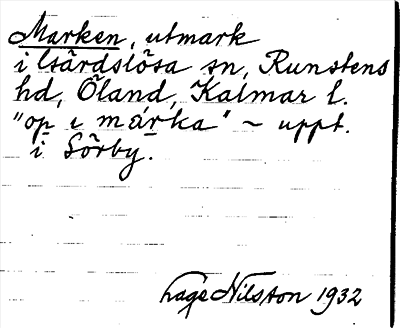 Marken, utmark
i Gärdslösa sn, Runstens
hd, Öland, Kalmar l.
"op ı mạ́rka" ~ uppt.
i Sörby.
Lage Nilsson 1932